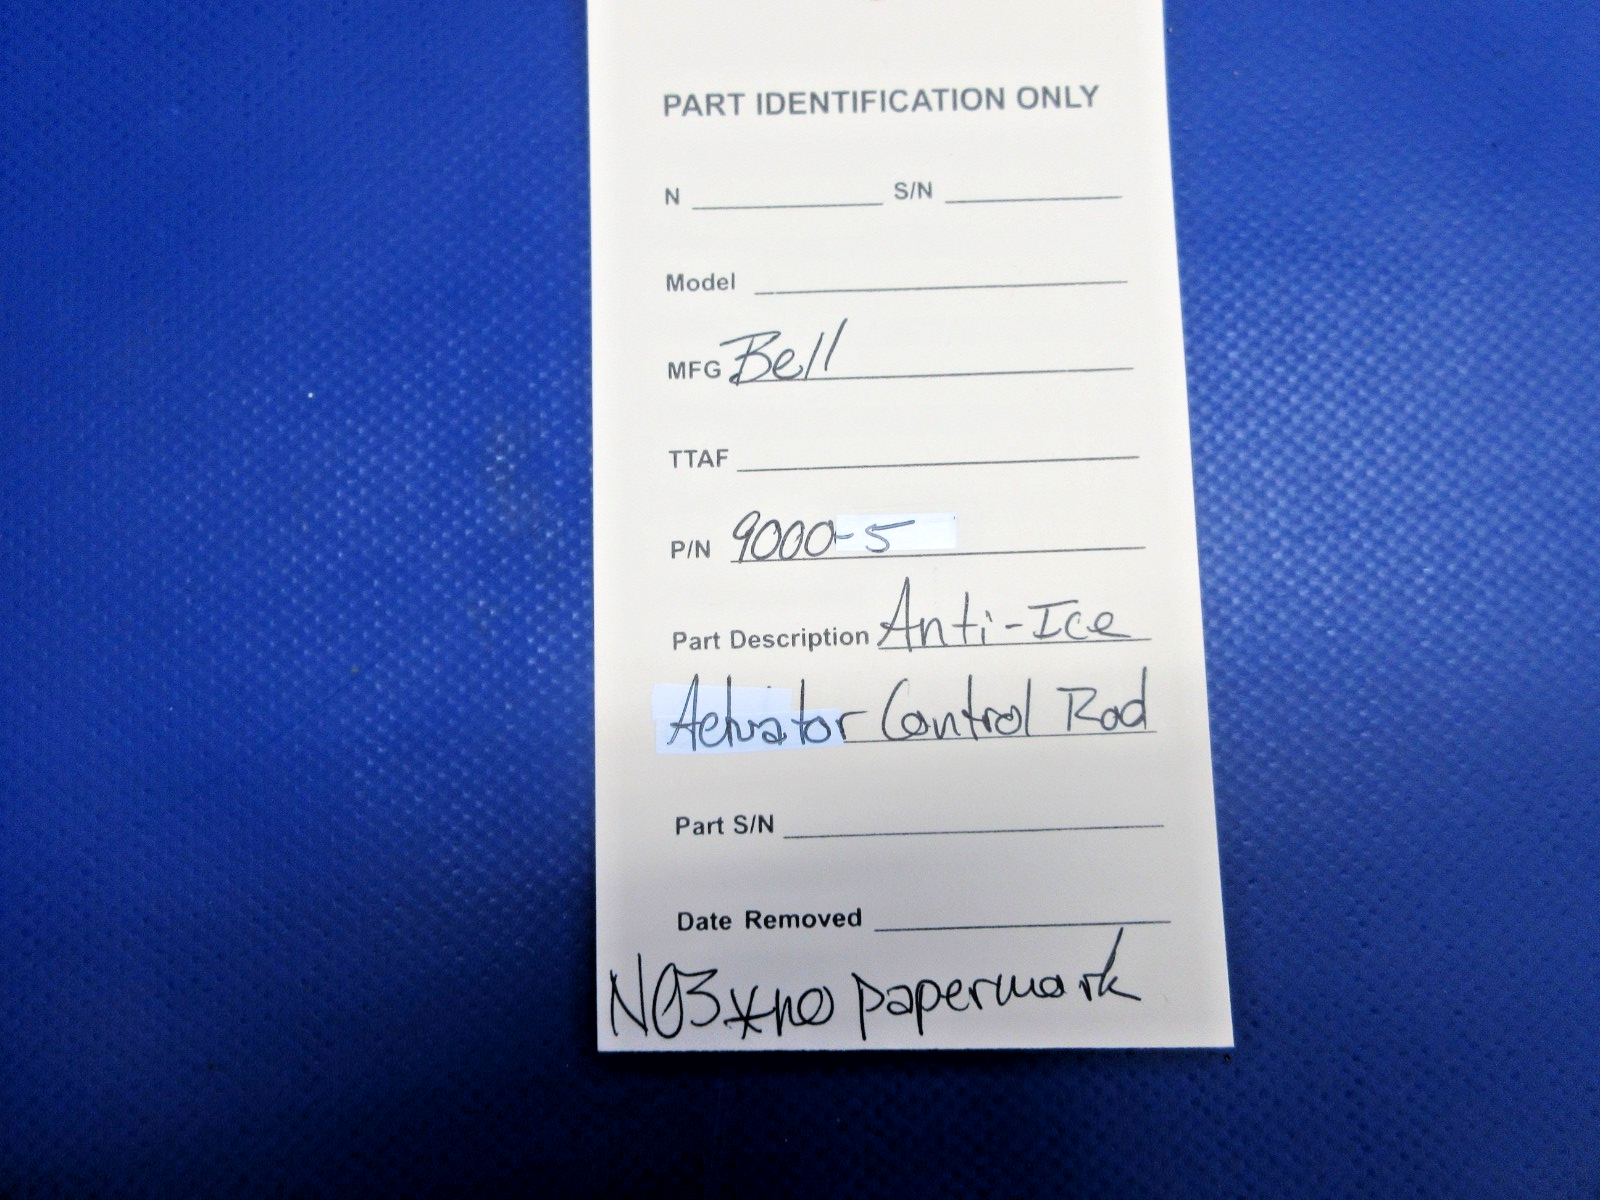 PART IDENTIFICATION ONLY
N S/N
Model
MFG Bell
TTAF
P/N 9000-5
Part Description Anti-Ice
Actuator Control Rod
Part S/N
Date Removed
N03 *no papermark